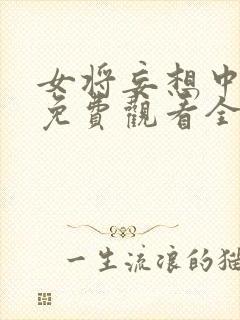 女将妄想中
免費觀看全
一生流浪的猫